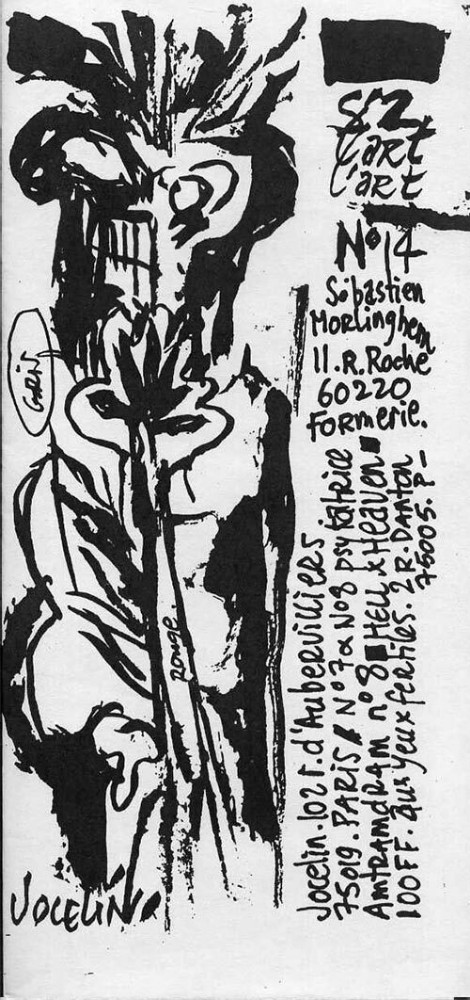 siz
l'art
l'art
N° 14
Sébastien
Morlinghem
11. R. Roche
60220
Formerie.
GRIS
rouge.
Jocelin. 102 r. d'Aubervilliers
75019. PARIS // N°7 & N°8 psykatrice
Amtramdram n° 8 Hell & Heaven
100FF. aux yeux fertiles. 2 R. Danton
75005. P-
JOCELIN